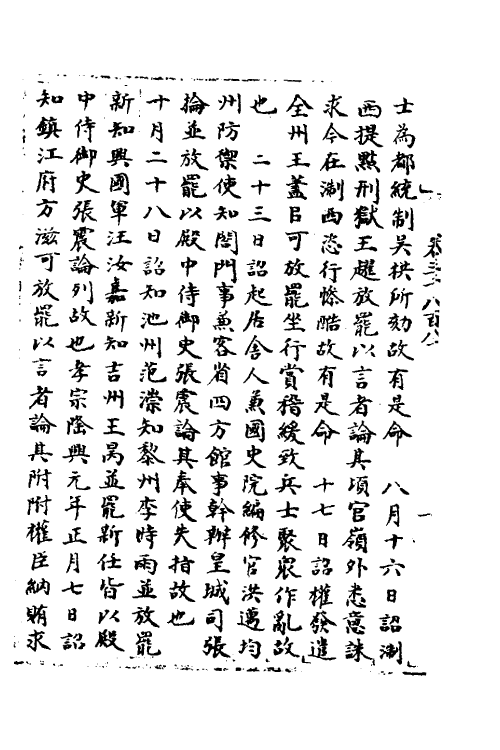 士為都統制吳拱所劾故有是命　八月十六日詔淛
西提點刑獄王趯放罷以言者論其頃官嶺外恣意誅
求今在淛西恣行慘酷故有是命　十七日詔權發遣
全州王蓋臣可放罷坐行賞稽緩致兵士聚衆作亂故
也　二十三日詔起居舍人兼國史院編修官洪邁均
州防禦使知閤門事兼客省四方館事幹辦皇城司張
掄並放罷以殿中侍御史張震論其奉使失指故也
十月二十八日詔知池州范漴知黎州李時雨並放罷
新知興國軍汪汝嘉新知吉州王晸並罷新任皆以殿
中侍御史張震論列故也孝宗隆興元年正月七日詔
知鎮江府方滋可放罷以言者論其附附權臣納賄求